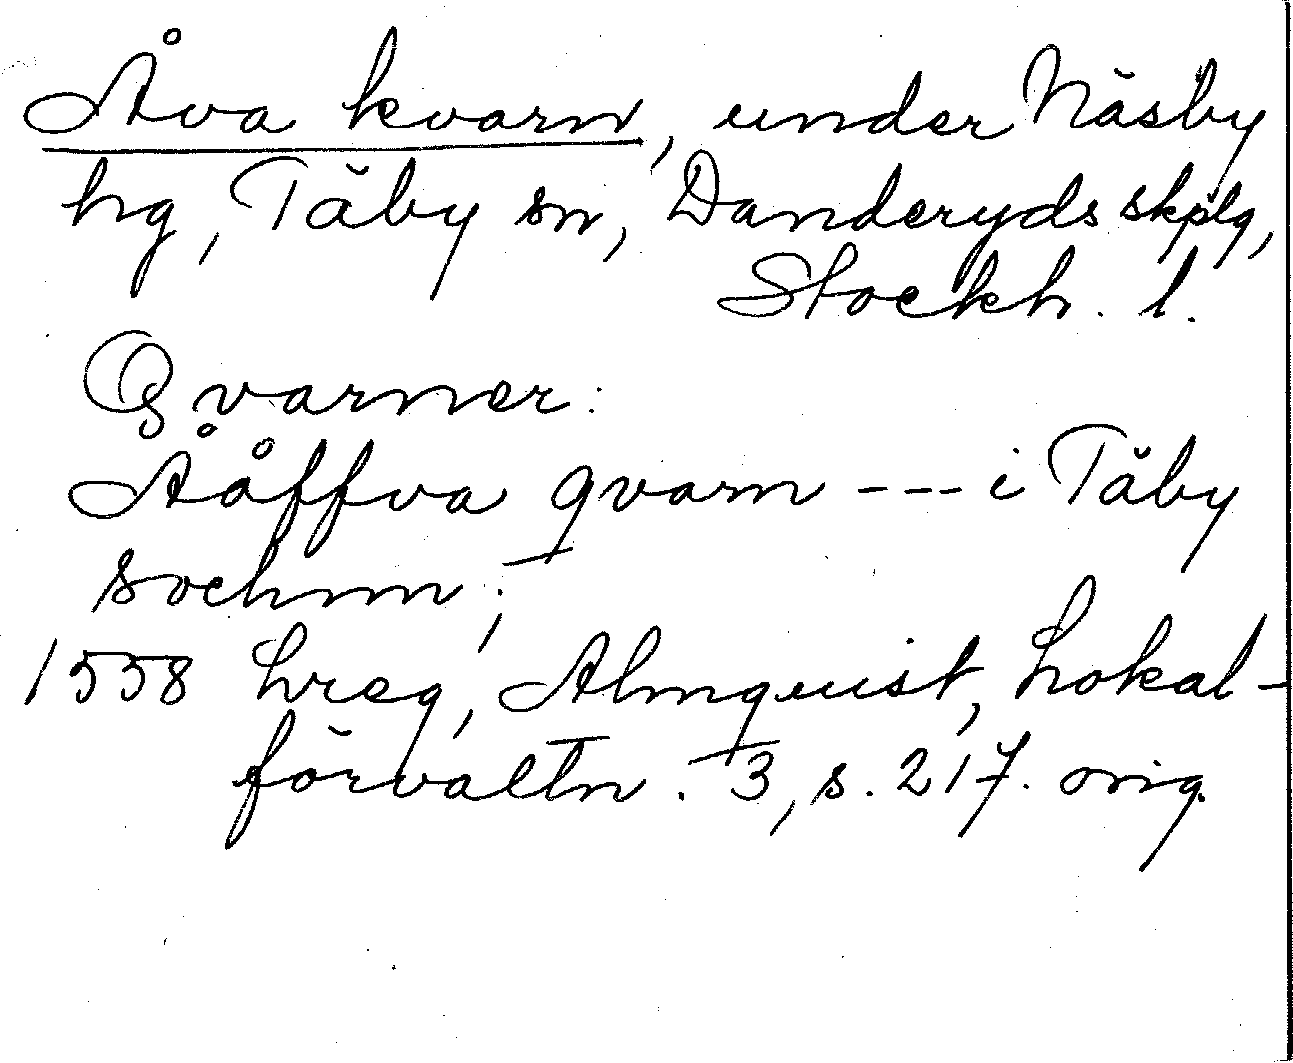 Åva kvarn, under Näsby
hg, Täby sn, Danderyds skplg,
Stockh. l.
Qvarner:
Ååffva qvarn --- i Täby
sochnn;
1558 hreg, Almquist, Lokal-
förvaltn. 3, s. 217. orig.